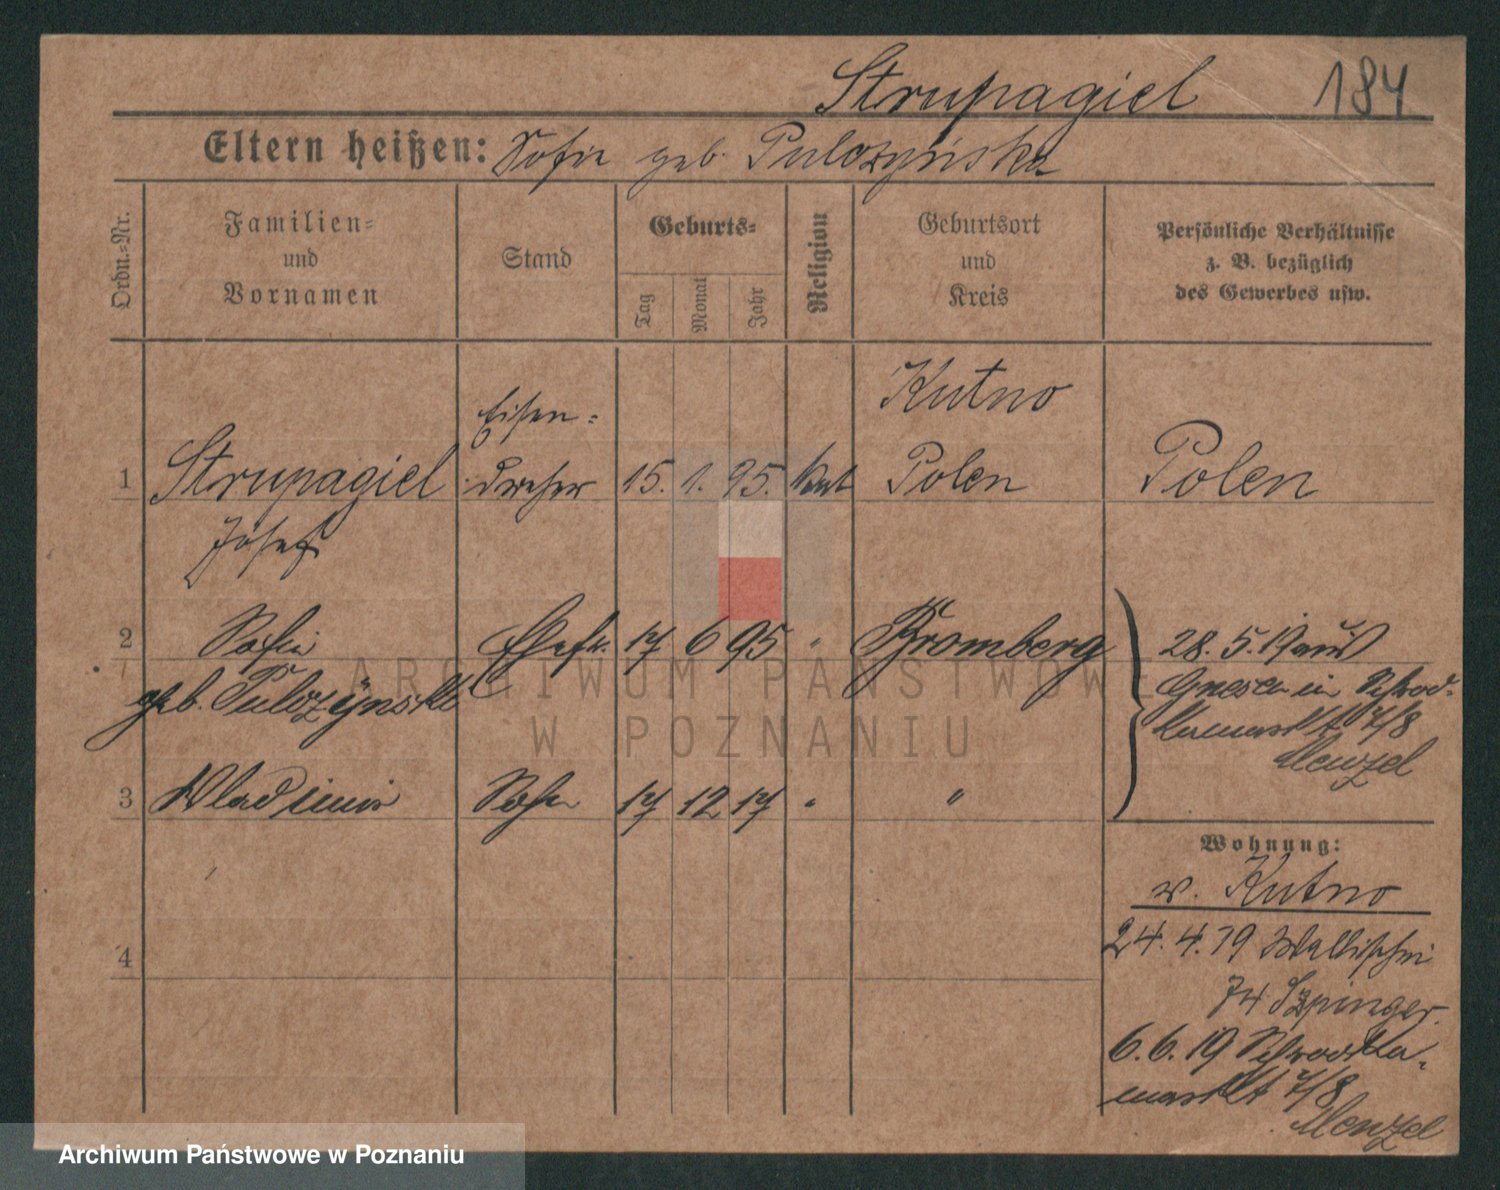 Strupagiel 184
Eltern heißen: Sofie geb. Pulczyńska
Ordn.-Nr.
Familien-
und
Vornamen
Stand
Geburts-
Tag
Monat
Jahr
Religion
Geburtsort
und
Kreis
Persönliche Verhältnisse
z. B. bezüglich
des Gewerbes usw.
Kutno
Eisen-
1 Strupagiel dreher 15. 1. 95. kat Polen Polen
Josef
2 Sofie Ehefr. 17 6 95 " Bromberg 28. 5. 19 aus
geb. Gnesen in Schrod-
kamarkt 7/8
Menzel
3 Wladimir Sohn 17 12 17 " "
Wohnung:
v. Kutno
4
24. 4. 19 Wallischei
74 Szpinger
6. 6. 19 Schrodka-
markt 7/8
Menzel
ARCHIWUM PAŃSTWOWE
W POZNANIU
Archiwum Państwowe w Poznaniu